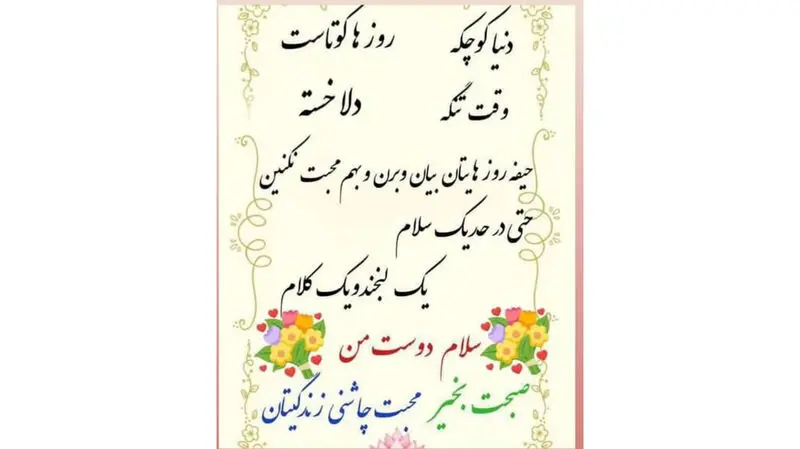 دنیا کوچکه روز ها کوتاست
وقت تنگه دلا خسته
حیفه روز هایتان بیان و برن و بهم محبت نکنین
حتی در حد یک سلام
یک لبخند و یک کلام
سلام دوست من
صبحت بخیر محبت چاشنی زندگیتان